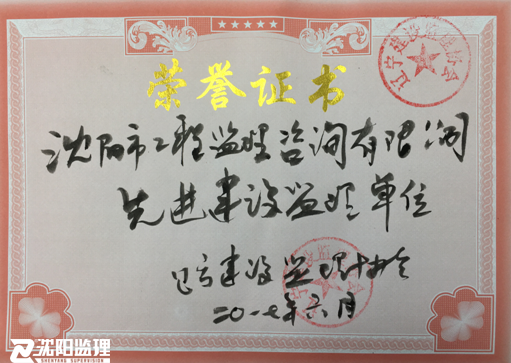 荣誉证书
沈阳市工程监理咨询有限公司
先进建设监理单位
辽宁建设监理协会
二〇一七年六月
沈阳监理
SHENYANG SUPERVISION